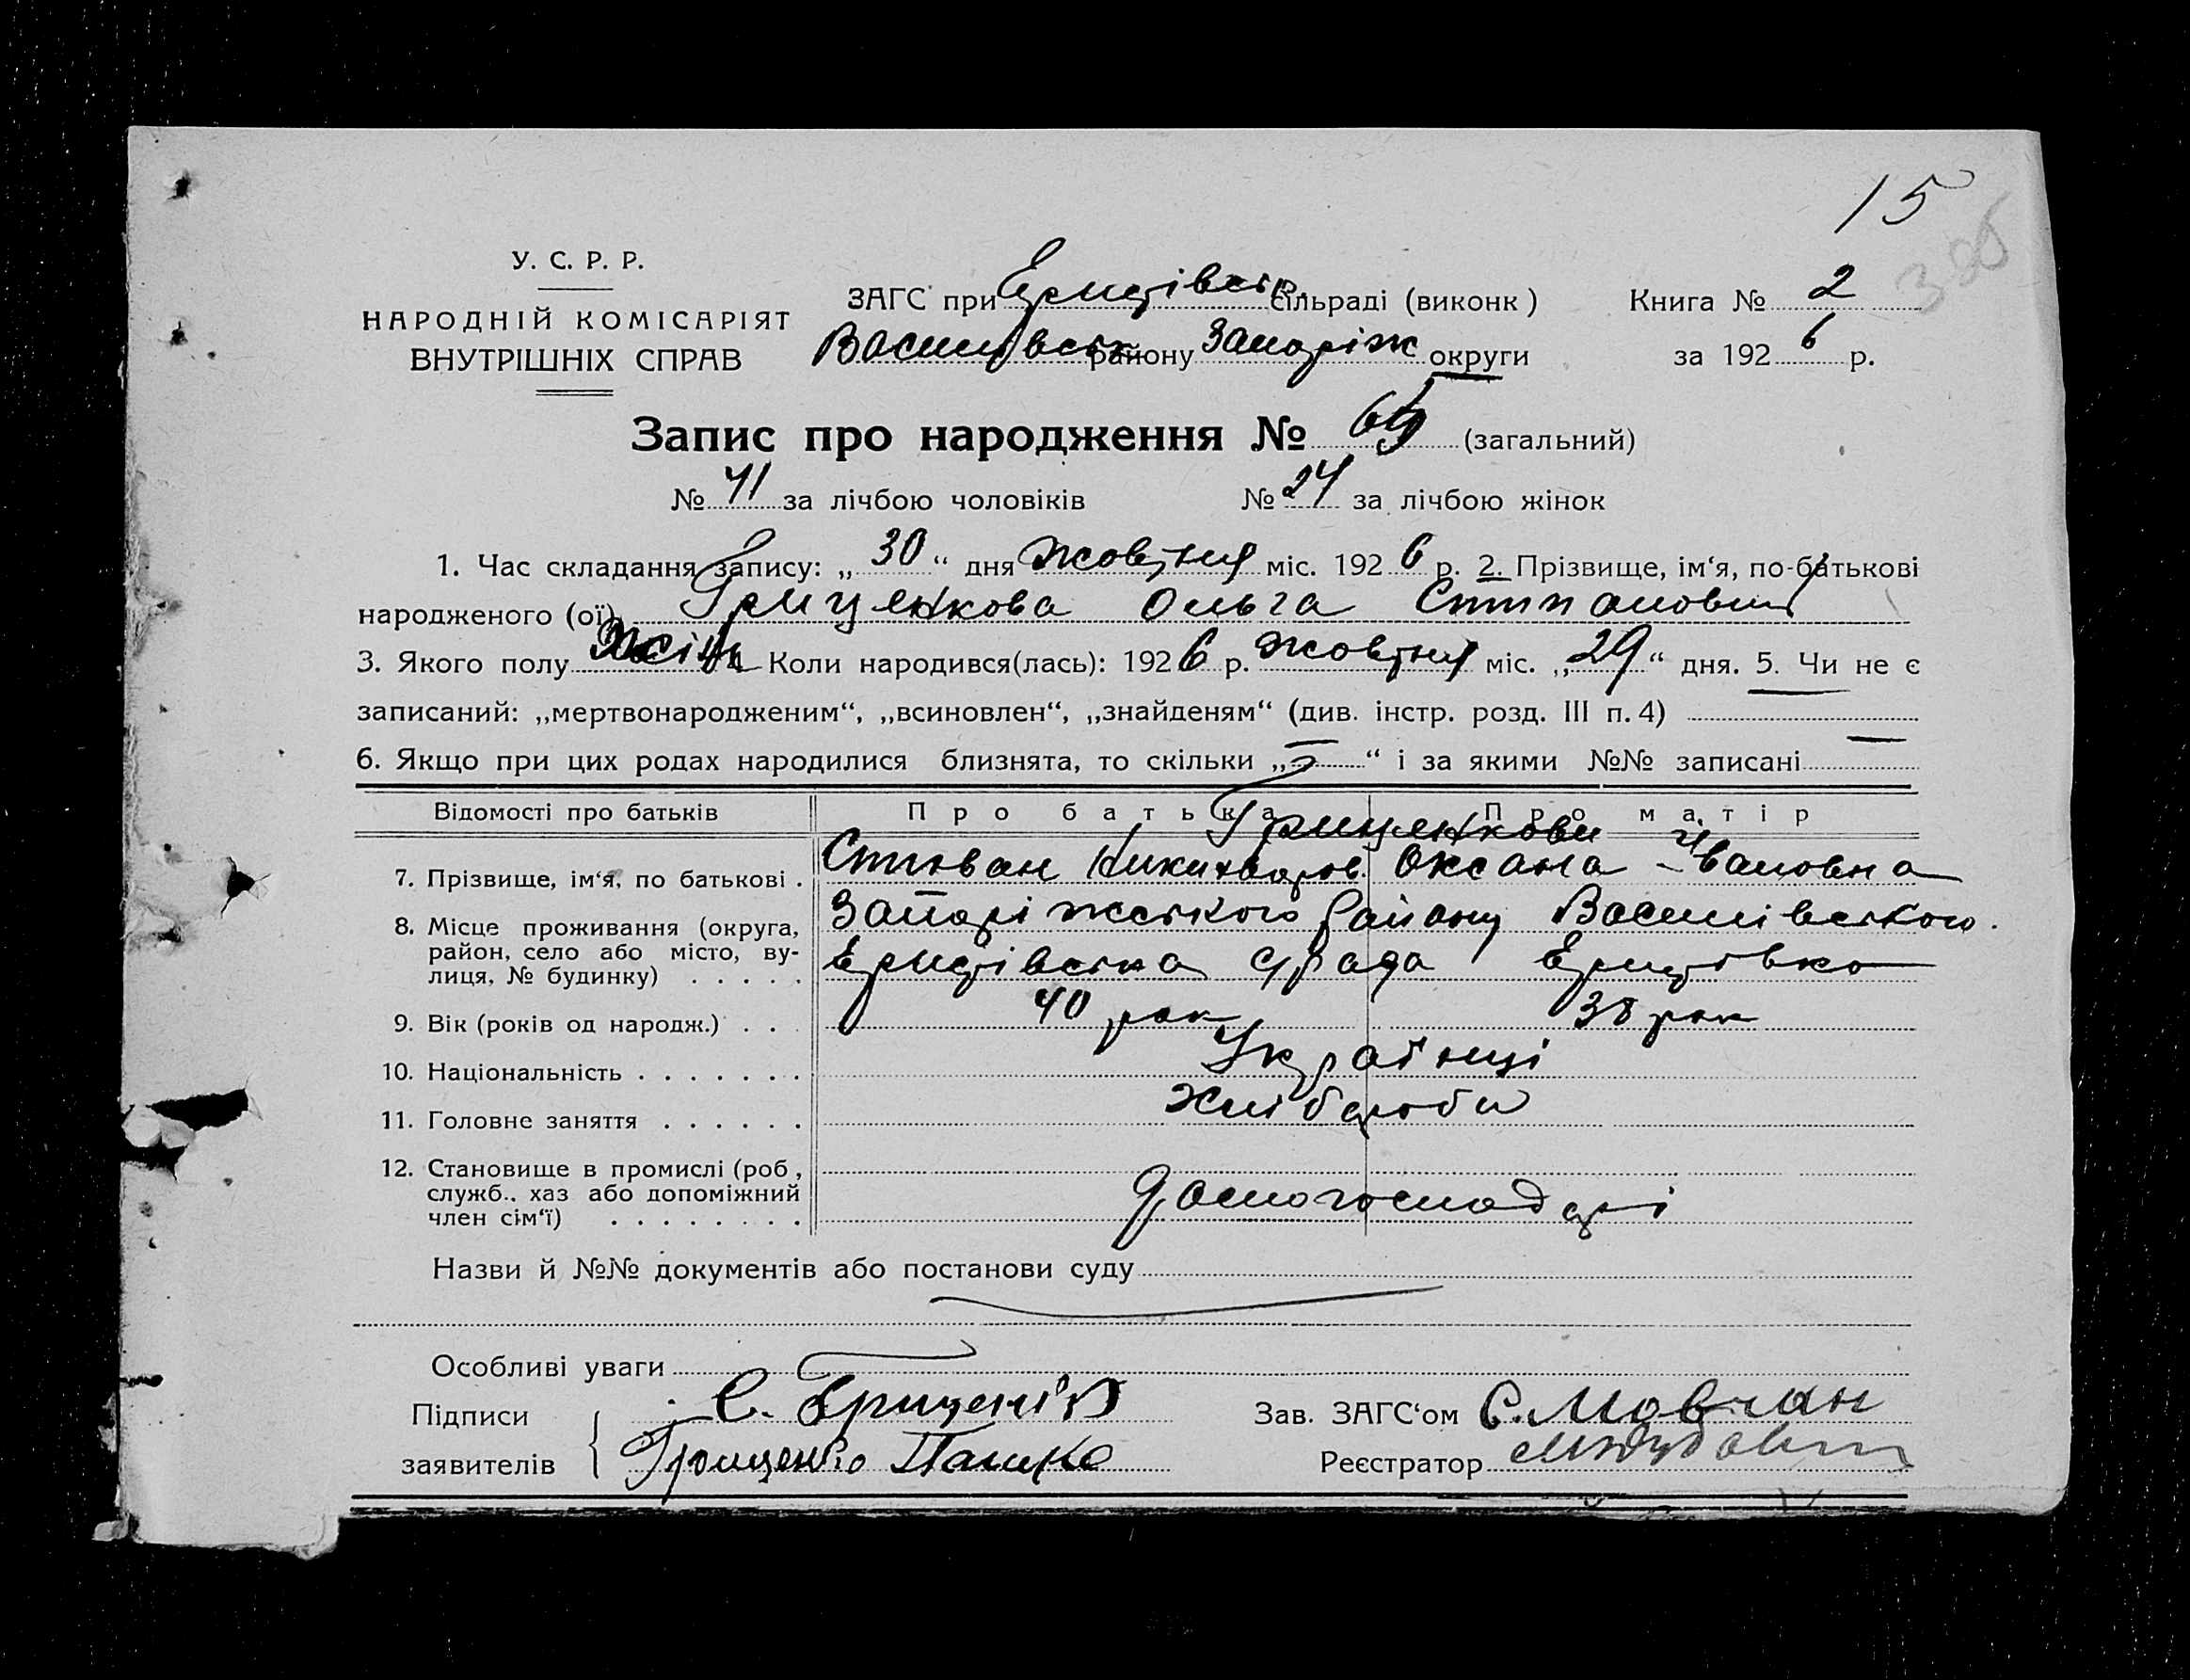 15
У. С. Р. Р.
ЗАГС при сільраді (виконк) Книга № 2
НАРОДНІЙ КОМІСАРІЯТ
ВНУТРІШНІХ СПРАВ
району Запоріж округи за 1926 р.
Запис про народження № 65 (загальний)
№ 41 за лічбою чоловіків № 24 за лічбою жінок
1. Час складання запису: „ 30 “ дня жовтня міс. 1926 р. 2. Прізвище, ім‘я, по-батькові
народженого (ої) Гриценкова Ольга
3. Якого полу Жін Коли народився(лась): 1926 р. жовтня міс. „ 29 “ дня. 5. Чи не є
записаний: „мертвонародженим“, „всиновлен“, „знайденям“ (див. інстр. розд. III п. 4)
6. Якщо при цих родах народилися близнята, то скільки „ “ і за якими №№ записані
Відомості про батьків Про батька Про матір
Гриценкови
7. Прізвище, ім‘я, по батькові . Оксана Івановна
8. Місце проживання (округа, Запоріжського району Василівського
район, село або місто, ву-
лиця, № будинку) . . . . .
9. Вік (років од народж.) . . . 40 рок 38 рок
10. Національність . . . . . . . Українці
11. Головне заняття . . . . . . Хлібороби
12. Становище в промислі (роб,
служб., хаз або допоміжний
член сім‘ї) . . . . . . . . домогосподарі
Назви й №№ документів або постанови суду
Особливі уваги
Підписи Зав. ЗАГС‘ом С. Мовчан
заявителів Гриценко Реєстратор